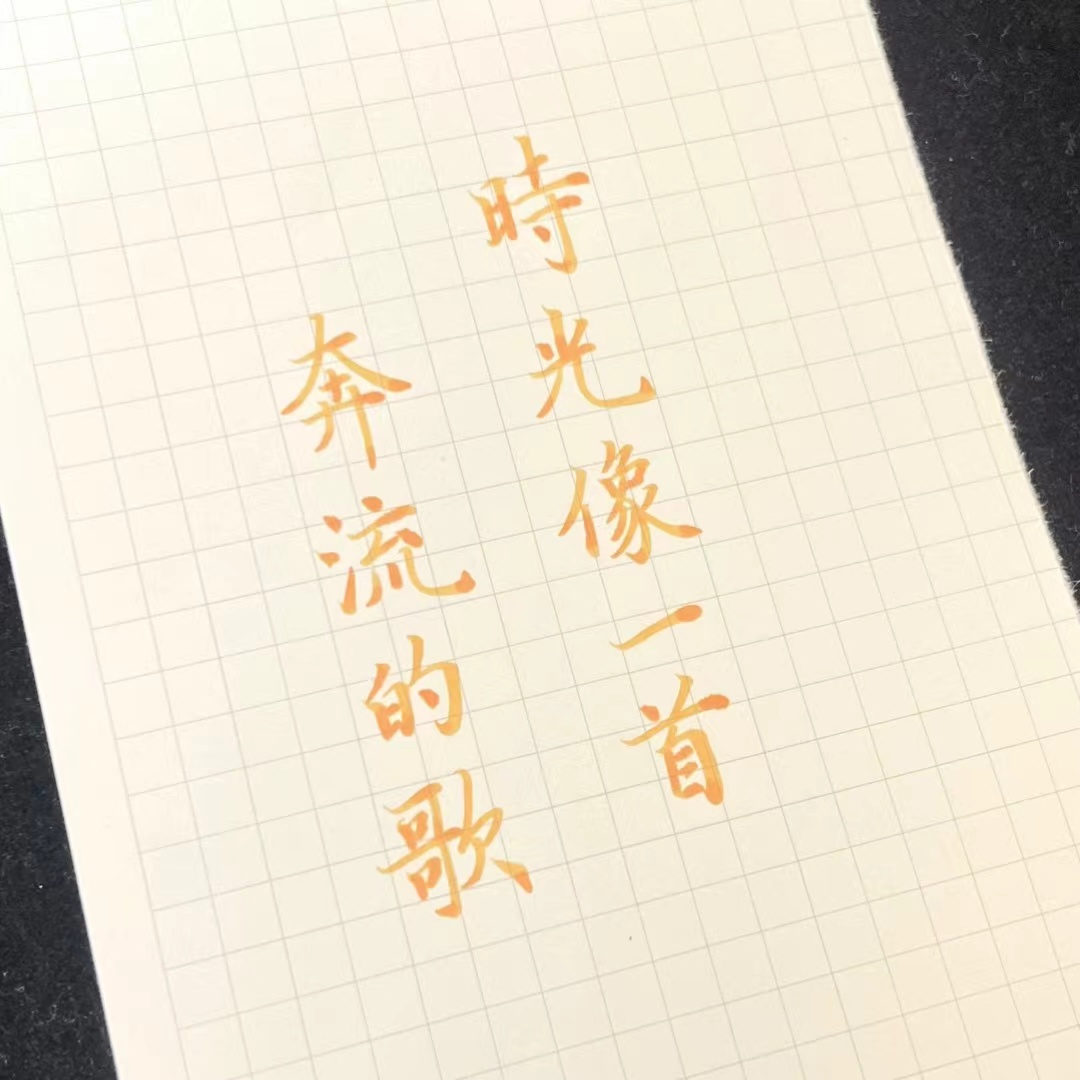 時光像一首
奔流的歌